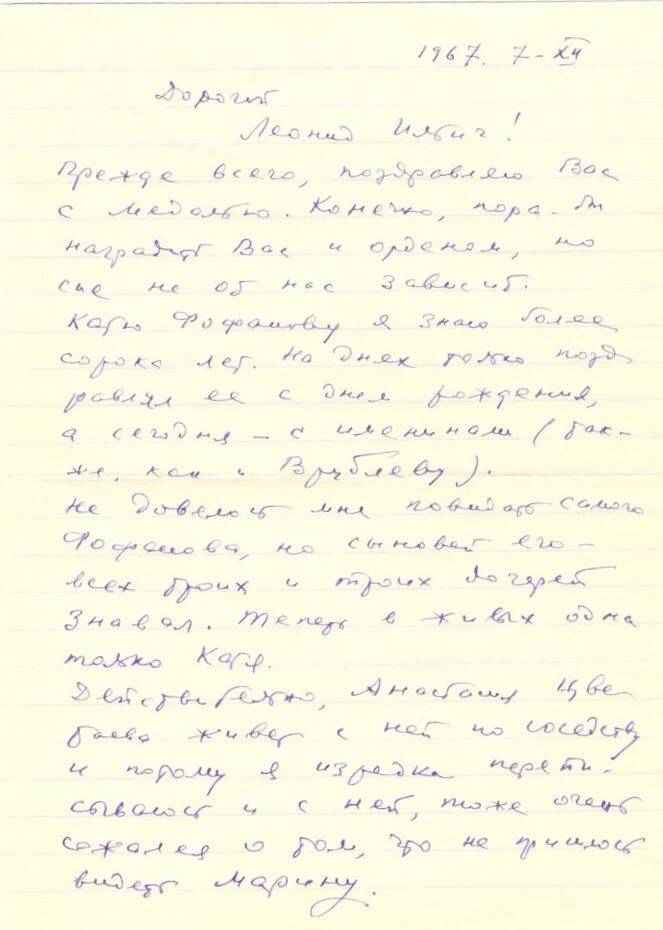 1967. 7-XII
Дорогой
Леонид Ильич!
Прежде всего, поздравляю Вас
с медалью. Конечно, пора-бы
наградить Вас и орденом, но
сие не от нас зависит.
Катю Фофанову я знаю более
сорока лет. На днях только позд
равлял ее с днем рождения,
а сегодня – с именинами (так-
же, как и Врублеву).
Не довелось мне повидать самого
Фофанова, но сыновей его –
всех троих и троих дочерей
знавал. Теперь в живых одна
только Катя.
Действительно, Анастасия Цве
таева живет с ней по соседству
и потому я изредка перепи-
сываюсь и с ней, тоже очень
сожалея о том, что не пришлось
видеть Марину.